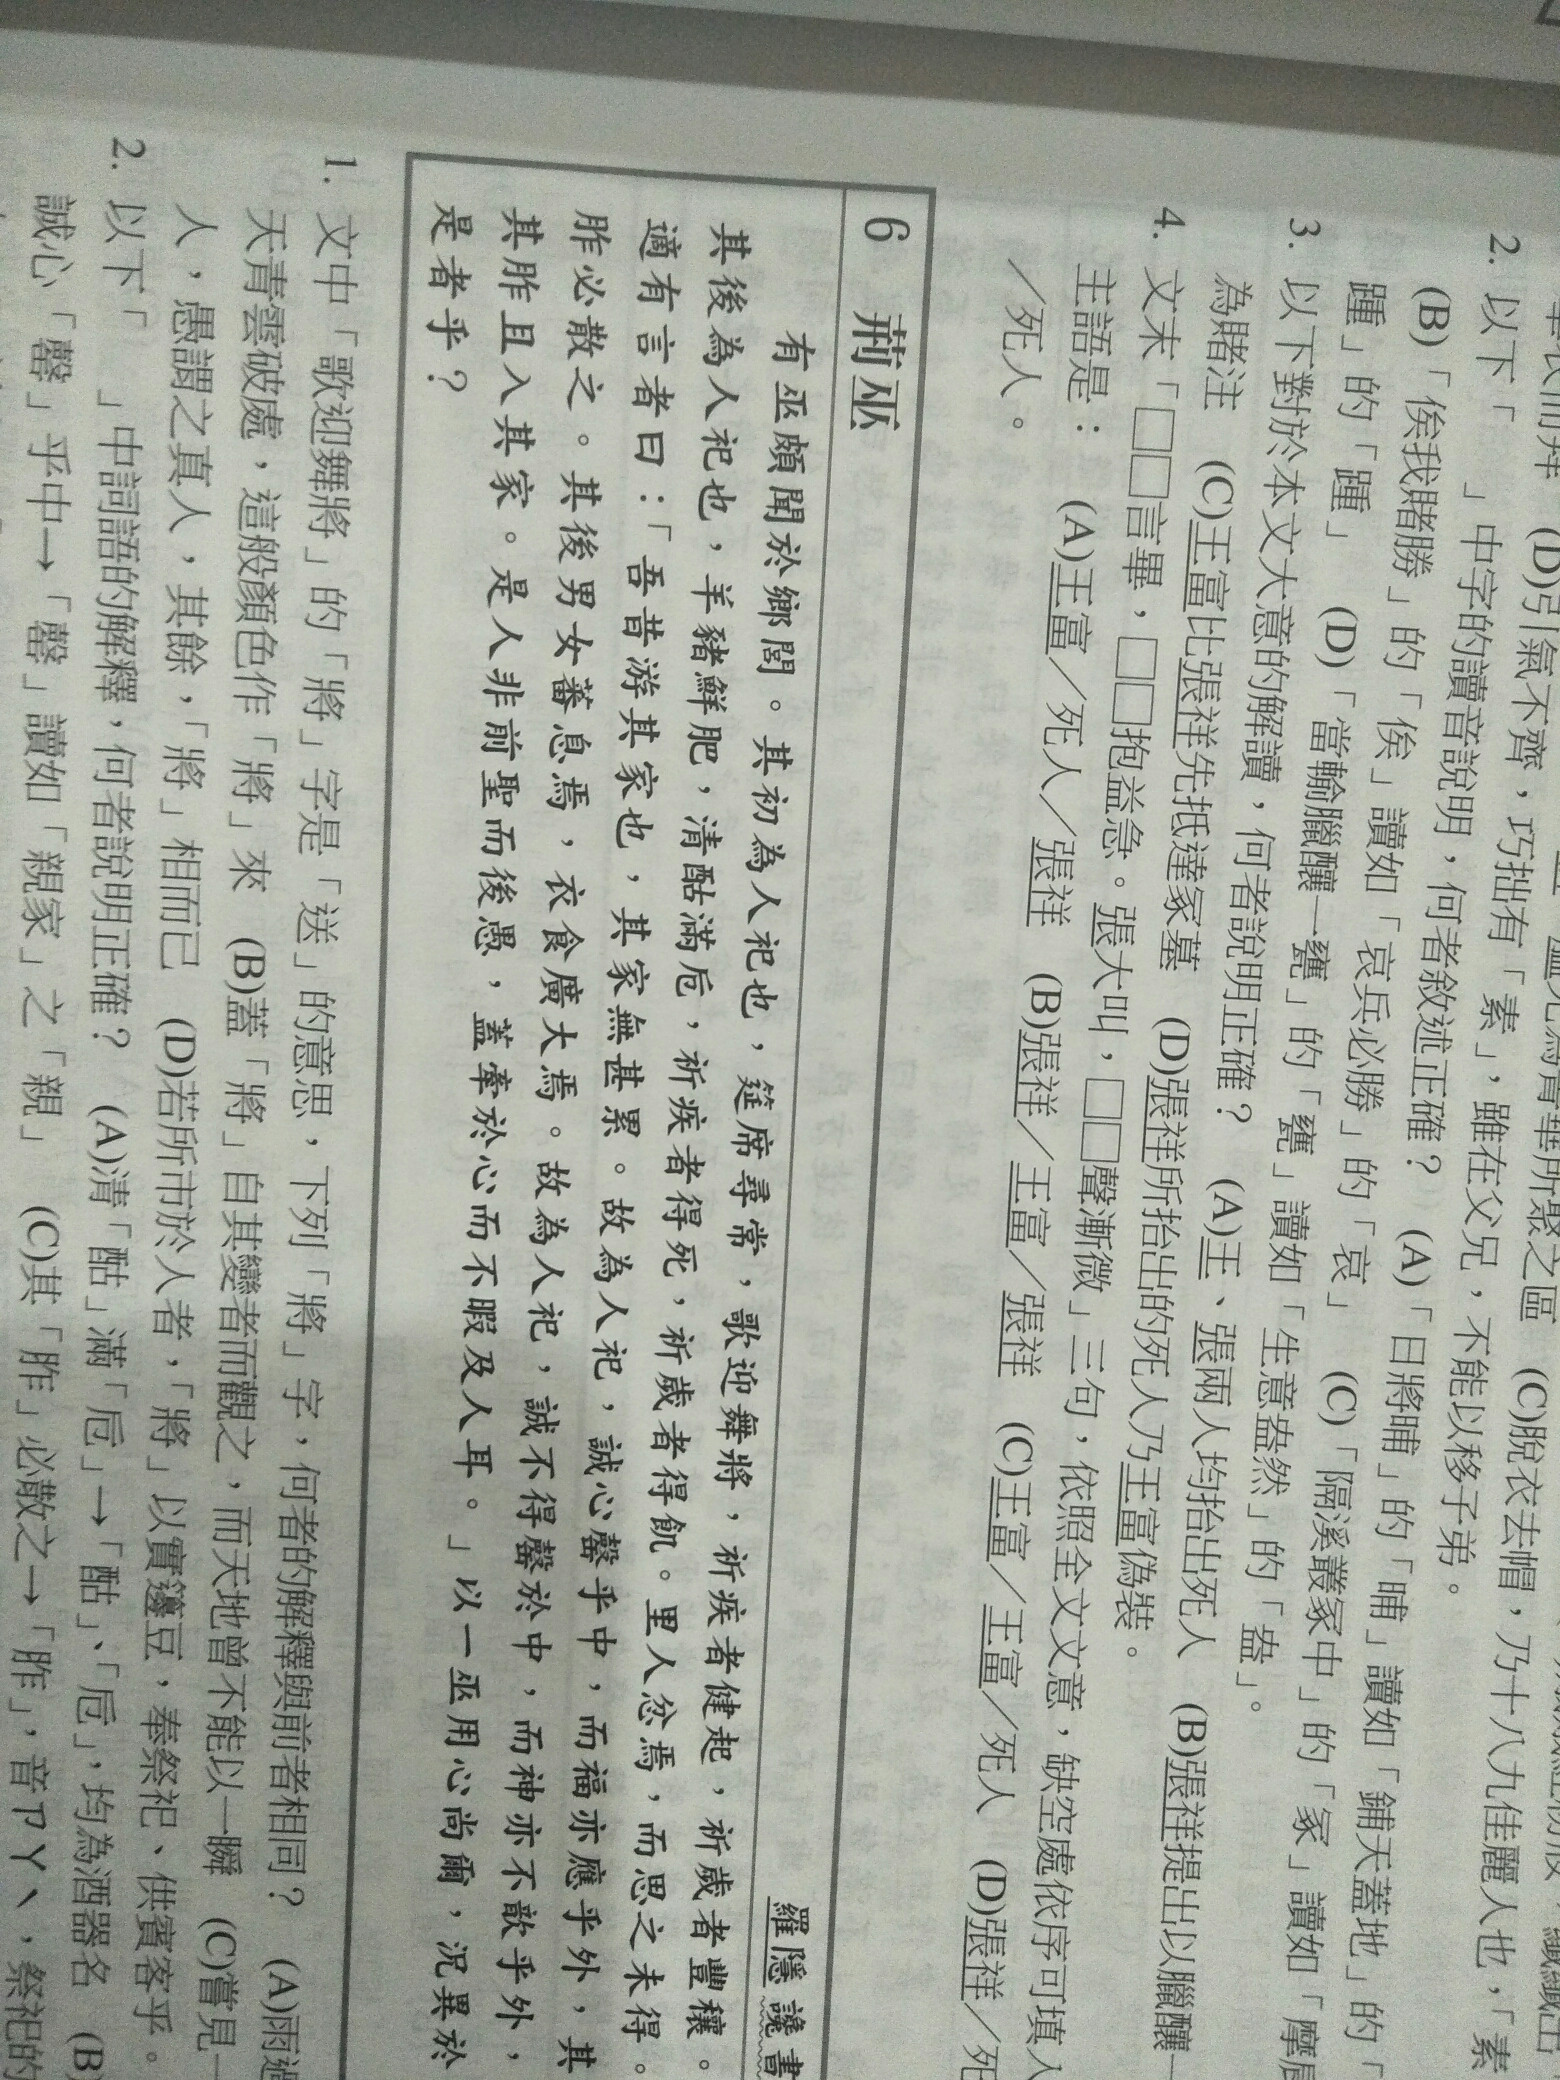 聲長而拜　(D)引氣不齊，巧拙有「素」，雖在父兄，不能以移子弟。
2. 以下「　」中字的讀音說明，何者敘述正確？　(A)「日將晡」的「晡」讀如「鋪天蓋地」的「
(B)「俟我賭勝」的「俟」讀如「哀兵必勝」的「哀」　(C)「隔溪叢冢中」的「冢」讀如「摩肩
踵」的「踵」　(D)「當輸臘釀一甕」的「甕」讀如「生意盎然」的「盎」。
3. 以下對於本文大意的解讀，何者說明正確？　(A)王、張兩人均抬出死人　(B)張祥提出以臘釀一
為賭注　(C)王富比張祥先抵達冢墓　(D)張祥所抬出的死人乃王富偽裝。
4. 文末「□□言畢，□□抱益急。張大叫，□□聲漸微」三句，依照全文文意，缺空處依序可填入
主語是：　(A)王富／死人／張祥　(B)張祥／王富／張祥　(C)王富／王富／死人　(D)張祥／死
／死人。
6　荊巫
羅隱讒書
有巫頗聞於鄉閭。其初為人祀也，筵席尋常，歌迎舞將，祈疾者健起，祈歲者豐穰。
其後為人祀也，羊豬鮮肥，清酤滿卮，祈疾者得死，祈歲者得飢。里人忿焉，而思之未得。
適有言者曰：「吾昔游其家也，其家無甚累。故為人祀，誠心罄乎中，而福亦應乎外，其
胙必散之。其後男女蕃息焉，衣食廣大焉。故為人祀，誠不得罄於中，而神亦不歆乎外，
其胙且入其家。是人非前聖而後愚，蓋牽於心而不暇及人耳。」以一巫用心尚爾，況異於
是者乎？
1. 文中「歌迎舞將」的「將」字是「送」的意思，下列「將」字，何者的解釋與前者相同？　(A)雨過
天青雲破處，這般顏色作「將」來　(B)蓋「將」自其變者而觀之，而天地曾不能以一瞬　(C)嘗見一
人，愚謂之真人，其餘，「將」相而已　(D)若所市於人者，「將」以實籩豆，奉祭祀、供賓客乎。
2. 以下「　」中詞語的解釋，何者說明正確？　(A)清「酤」滿「卮」→「酤」、「卮」，均為酒器名　(B)
誠心「罄」乎中→「罄」讀如「親家」之「親」　(C)其「胙」必散之→「胙」，音ㄗㄚˋ，祭祀的